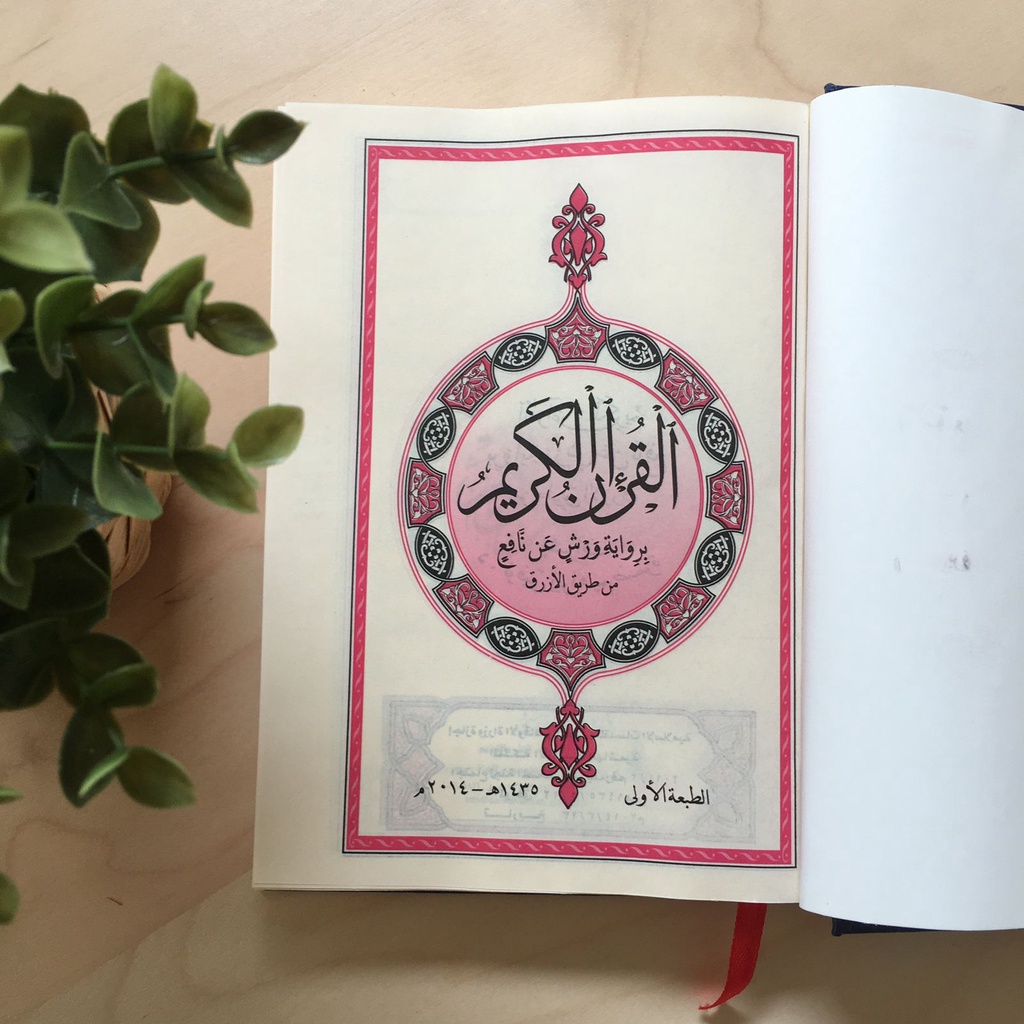 ٱلْقُرْءَانُ ٱلْكَرِيمُ
بِرِوَايَةِ وَرْشٍ عَن نَّافِعٍ
من طريق الأزرق
الطبعة الأولى ١٤٣٥هـ – ٢٠١٤م